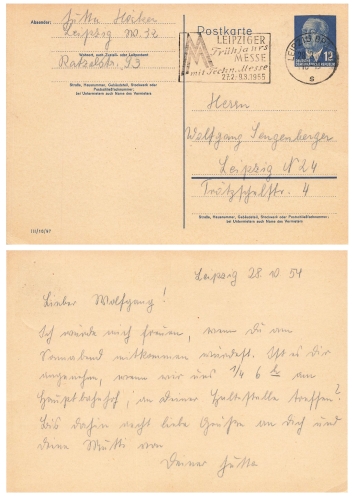 Absender: Jutta Höcker
Leipzig W. 32
Wohnort, auch Zustell- oder Leitpostamt
Ratzelstr. 93
Straße, Hausnummer, Gebäudeteil, Stockwerk oder
Postschließfachnummer;
bei Untermietern auch Name des Vermieters
III/10/47
Postkarte
LEIPZIGER
Frühjahrs
MESSE
mit Techn. Messe
27.2.-9.3.1955
LEIPZIG
12
Herrn
Wolfgang Sengenberger
Leipzig N 24
4
Straße, Hausnummer, Gebäudeteil, Stockwerk oder Postschließfachnummer;
bei Untermietern auch Name des Vermieters
Leipzig 28. 10 54
Lieber Wolfgang!
Ich würde mich freuen, wenn Du am
Sonnabend mitkommen würdest. Ist es Dir
angenehm, wenn wir uns 1/4 6 am
Hauptbahnhof, an Deiner Haltestelle treffen?
Bis dahin recht liebe Grüße an Dich und
Deine Mutti von
Deiner Jutta